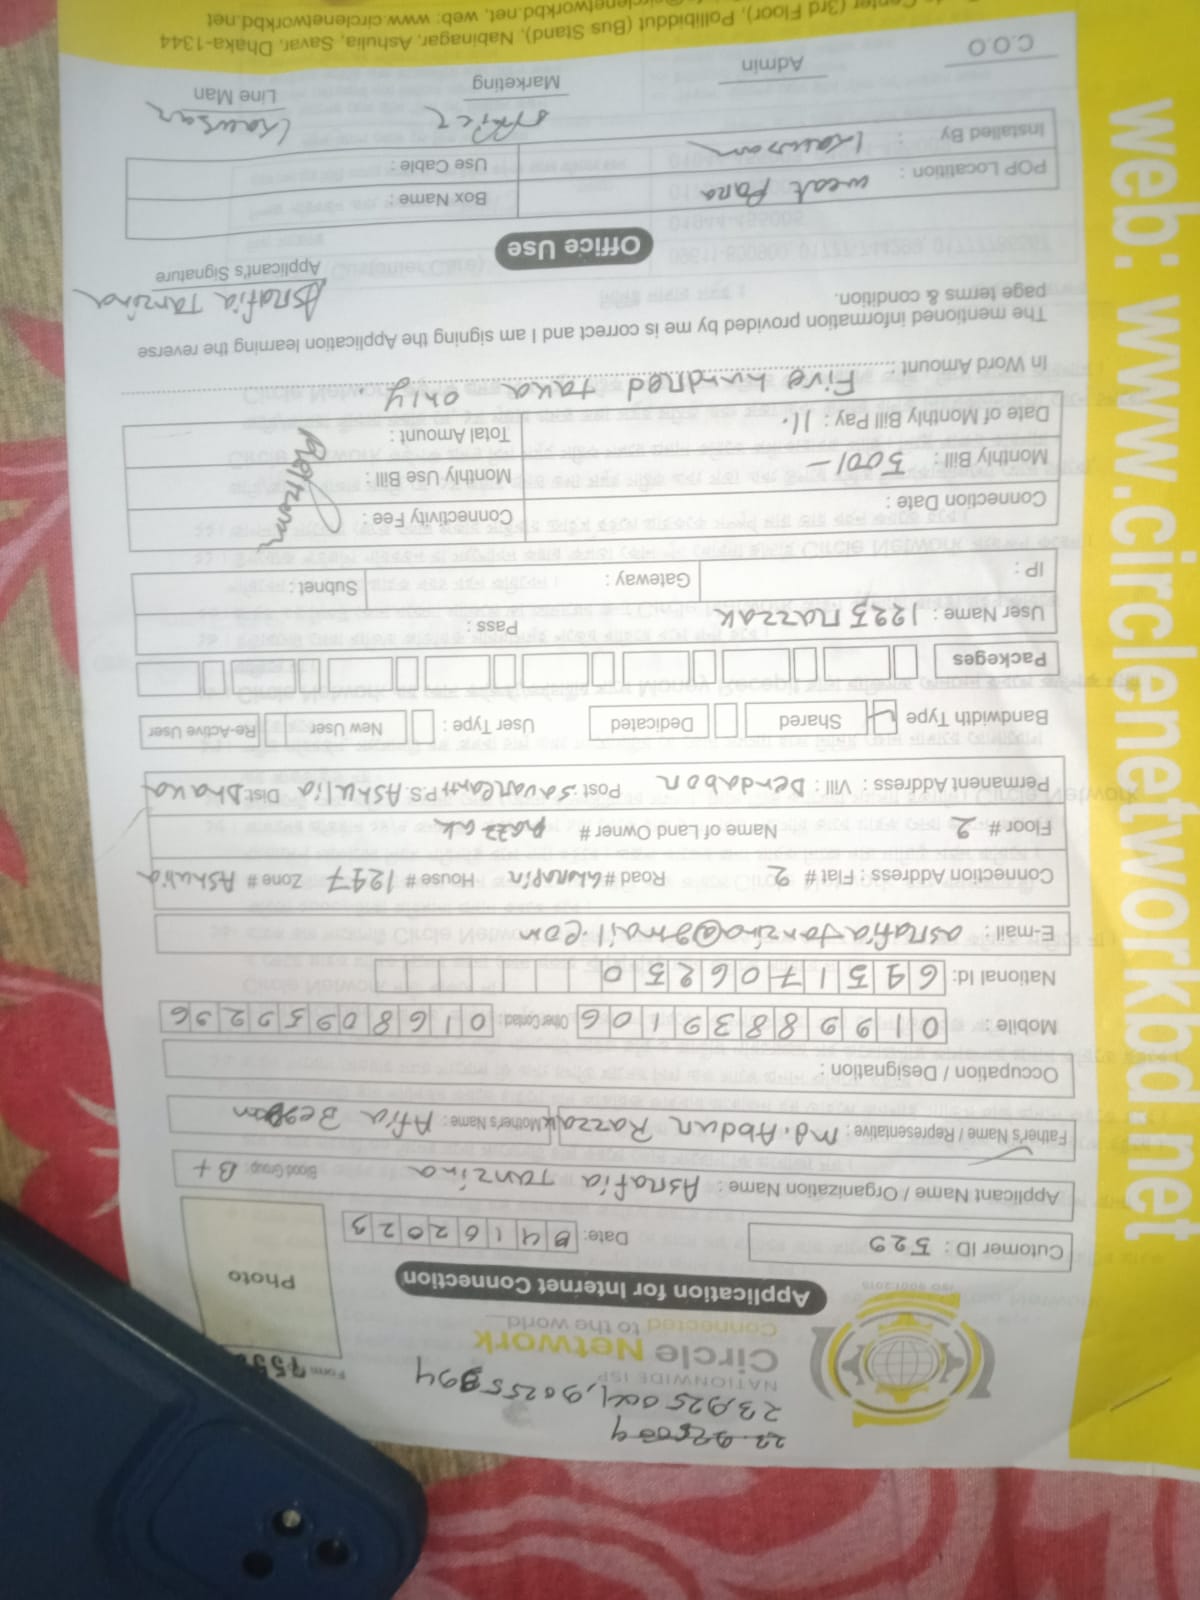 23,925004, 90255894
NATIONWIDE ISP
Circle Network
Connected to the world
ISO 9001:2015
Form
Photo
Application for Internet Connection
Cutomer ID : 529 Date: 04162023
Applicant Name / Organization Name : Asrafia Tanzina Blood Group: B+
Father's Name / Representative : Md. Abdur Razzak Mother's Name : Afia Begom
Occupation / Designation :
Mobile : 01998839106 Other Contact : 01680959296
National Id: 6951706250
E-mail : asrafiatanzina@gmail.com
Connection Address : Flat # 2 Road # House # 1247 Zone # Ashulia
Floor # 2 Name of Land Owner # Razzak
Permanent Address : Vill : Dendabor Post Savarcantt P.S. Ashulia Dist: Dhaka
Bandwidth Type Shared Dedicated User Type : New User Re-Active User
Packeges
User Name : 1225razzak Pass :
IP : Gateway : Subnet :
Connection Date : Connectivity Fee :
Monthly Bill : 500/- Monthly Use Bill :
Date of Monthly Bill Pay : 11. Total Amount :
In Word Amount : Five hundred taka only.
The mentioned information provided by me is correct and I am signing the Application learning the reverse
page terms & condition.
Asrafia Tanzina
Applicant's Signature
Office Use
POP Locatition : west Para Box Name :
Installed By : Kawsar Use Cable :
Kawsar
C.O.O Admin Marketing Line Man
Center (3rd Floor), Pollibiddut (Bus Stand), Nabinagar, Ashulia, Savar, Dhaka-1344
circlenetworkbd.net, web: www.circlenetworkbd.net
web: www.circlenetworkbd.net